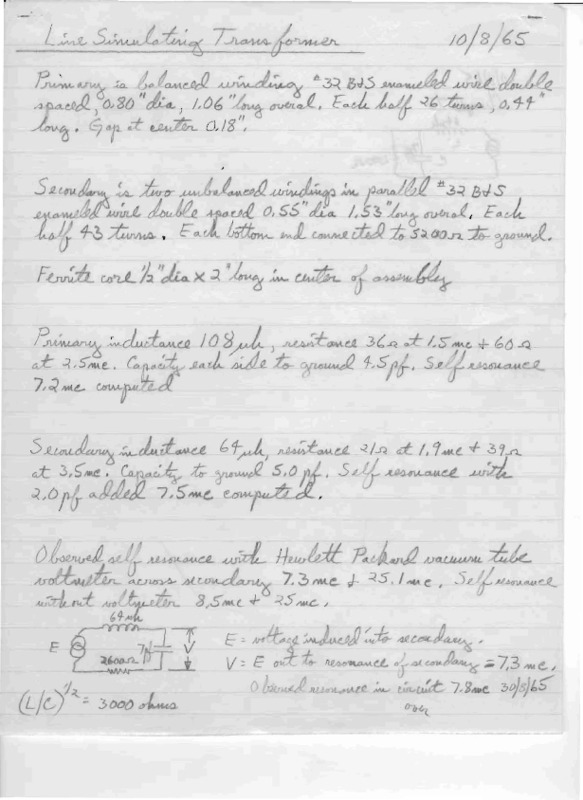 Line Simulating Transformer 10/8/65
Primary is balanced winding #32 B+S enameled wire double
spaced, 0.80" dia, 1.06" long overal. Each half 26 turns, 0.44"
long. Gap at center 0.18".
Secondary is two unbalanced windings in parallel #32 B+S
enameled wire double spaced 0.55" dia 1.53" long overal. Each
half 43 turns. Each bottom end connected to 5200Ω to ground.
Ferrite core 1/2" dia x 2" long in center of assembly
Primary inductance 108 μh, resistance 36Ω at 1.5mc + 60Ω
at 2.5mc. Capacity each side to ground 4.5pf. Self resonance
7.2mc computed
Secondary inductance 64μh, resistance 21Ω at 1.9mc + 39Ω
at 3.5mc. Capacity to ground 5.0pf. Self resonance with
2.0pf added 7.5mc computed.
Observed self resonance with Hewlett Packard vacuum tube
voltmeter across secondary 7.3mc + 25.1mc. Self resonance
without voltmeter 8.5mc + 25mc.
64μh
E 7pf V
2600Ω
E = voltage induced into secondary.
V = E out to resonance of secondary = 7.3mc.
Observed resonance in circuit 7.8mc 30/8/65
(L/C)^1/2 = 3000 ohms
over